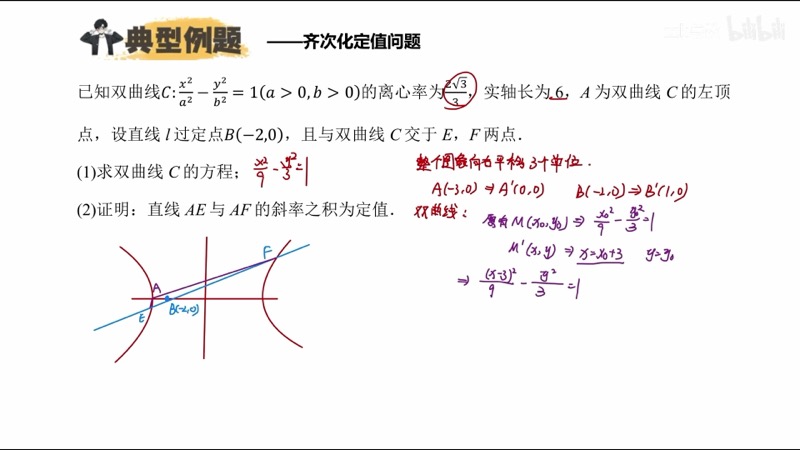 bilibili
典型例题 ——齐次化定值问题
已知双曲线C: x²/a² − y²/b² = 1(a > 0, b > 0)的离心率为2√3/3，实轴长为 6，A 为双曲线 C 的左顶
点，设直线 l 过定点B(−2,0)，且与双曲线 C 交于 E，F 两点．
(1)求双曲线 C 的方程；x²/9 - y²/3 = 1
(2)证明：直线 AE 与 AF 的斜率之积为定值．
整个图象向右平移3个单位.
A(-3,0) ⇒ A'(0,0) B(-2,0) ⇒ B'(1,0)
双曲线： M(x₀,y₀) ⇒ x₀²/9 - y₀²/3 = 1
M'(x,y) ⇒ x=x₀+3 y=y₀
⇒ (x-3)²/9 - y²/3 = 1
F
A
E
B(-2,0)